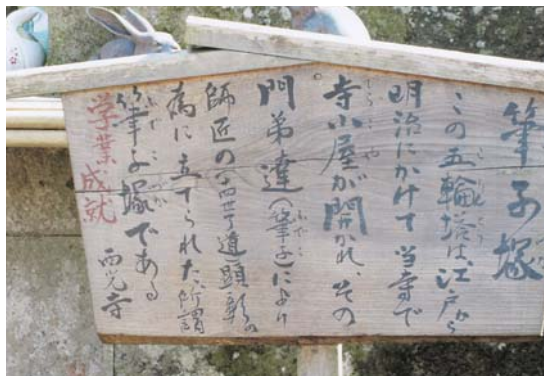 筆子塚
この五輪塔は、江戸から
明治にかけて当寺で
寺小屋が開かれ、その
門弟達(筆子)により
師匠の
為に立てられた、所謂
筆子塚である
西光寺
学業成就